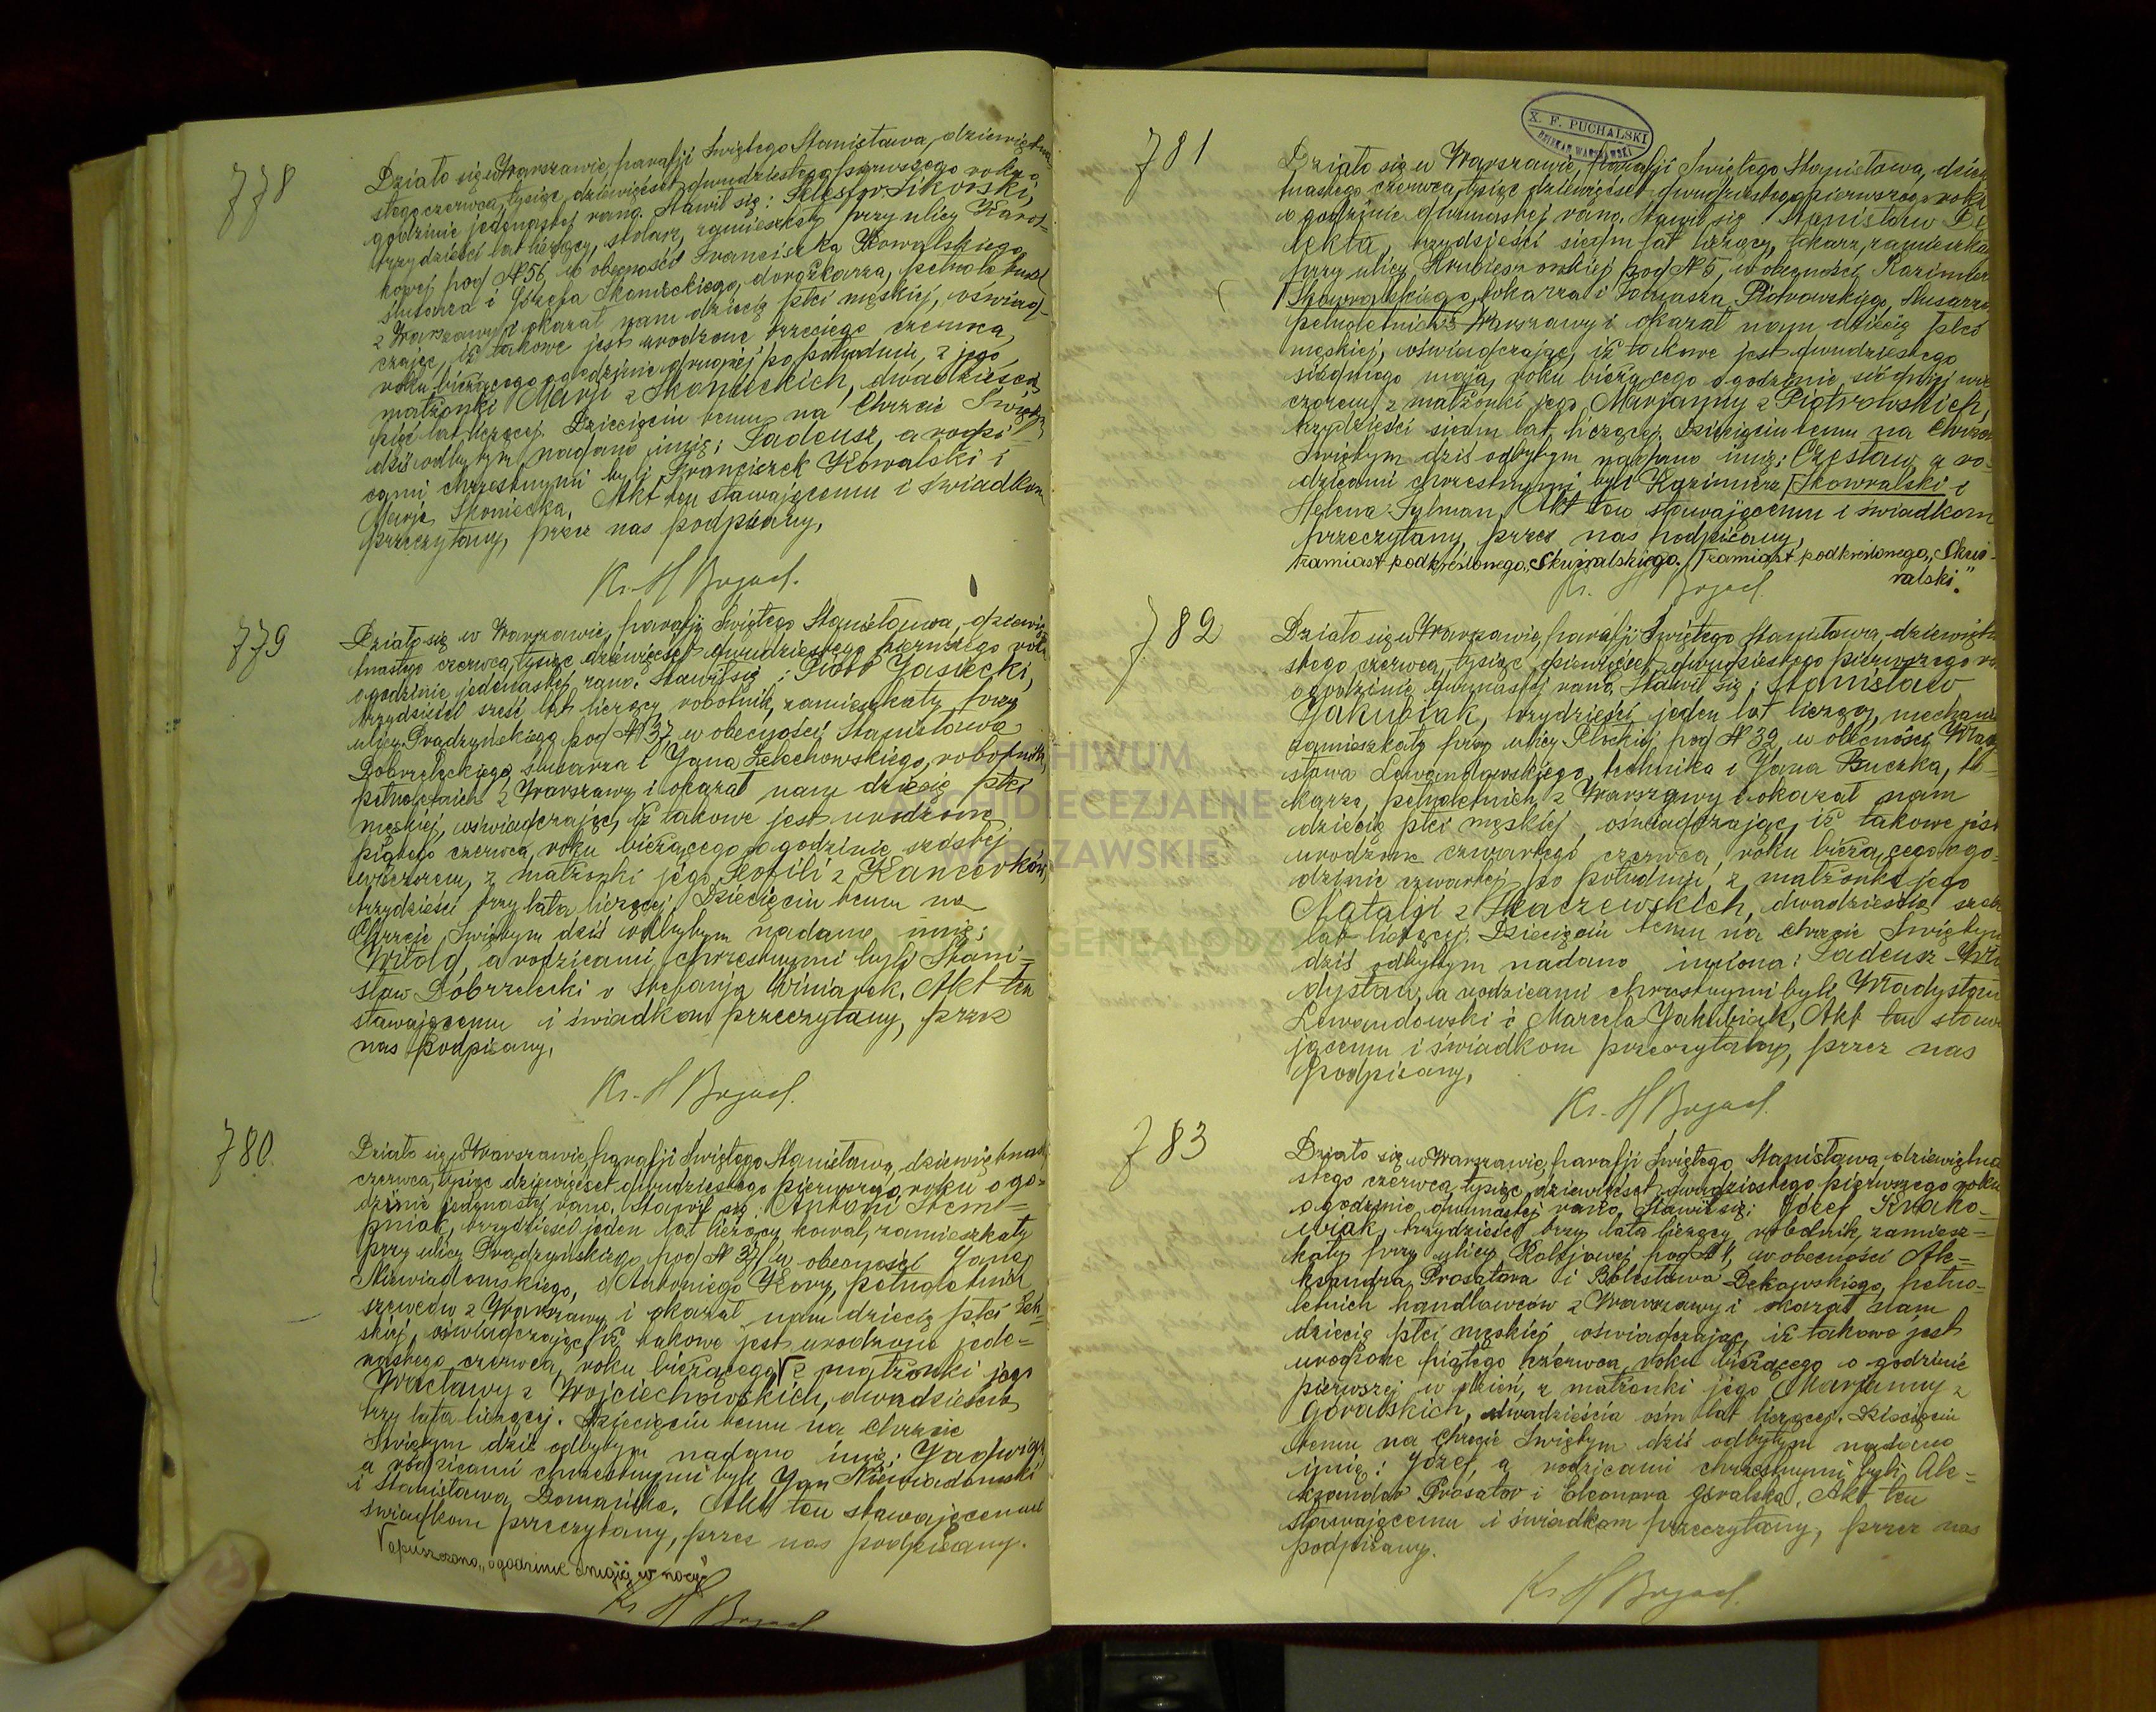 778
Działo się w Warszawie, parafji Świętego Stanisława, dziewiętna-
stego czerwca, tysiąc dziewięćset dwudziestego pierwszego roku o
godzinie jedenastej rano. Stawił się: Sikorski,
trzydzieści lat liczący, stolarz, zamieszkały przy ulicy Karol-
kowej pod N 56, w obecności Franciszka Kowalskiego,
ślusarza i Józefa Skonieckiego, dorożkarza, pełnoletnich
z Warszawy i okazał nam dziecię płci męskiej, oświad-
czając, iż takowe jest urodzone trzeciego czerwca,
roku bieżącego o godzinie drugiej po południu, z jego
małżonki Marji z Skonieckich, dwadzieścia
pięć lat liczącej. Dziecięciu temu na Chrzcie Świętym
dziś odbytym nadano imię: Tadeusz, a rodzi-
cami chrzestnymi byli Franciszek Kowalski i
Marja Skoniecka. Akt ten stawającemu i świadkom
przeczytany, przez nas podpisany.
779
Działo się w Warszawie, parafji Świętego Stanisława, dziewię-
tnastego czerwca, tysiąc dziewięćset dwudziestego pierwszego roku
o godzinie jedenastej rano. Stawił się: Piotr Jasiecki,
trzydzieści sześć lat liczący, robotnik, zamieszkały przy
ulicy Prądzyńskiego pod N 37, w obecności Stanisława
Dobrzeleckiego, i Jana Żelechowskiego, robotnika,
pełnoletnich z Warszawy i okazał nam dziecię płci
męskiej, oświadczając, iż takowe jest urodzone
piątego czerwca, roku bieżącego o godzinie szóstej
wieczorem, z małżonki jego Teofili z
trzydzieści trzy lata liczącej. Dziecięciu temu na
Chrzcie Świętym dziś odbytym nadano imię:
Witold, a rodzicami chrzestnymi byli Stani-
sław Dobrzelecki i Stefanja Winiarek. Akt ten
stawającemu i świadkom przeczytany, przez
nas podpisany.
780.
Działo się w Warszawie, parafji Świętego Stanisława, dziewiętnast.
czerwca, tysiąc dziewięćset dwudziestego pierwszego roku o go-
dzinie jedynastej rano. Stawił się: Antoni Stem-
pniak, trzydzieści jeden lat liczący, kowal, zamieszkały
przy ulicy Prądzyńskiego pod N 37, w obecności Jana
Niewiadomskiego, i Antoniego pełnoletnich
szewców z Warszawy i okazał nam dziecię płci żeń-
skiej, oświadczając, iż takowe jest urodzone jede-
nastego czerwca, roku bieżącego √ z małżonki jego
Wacławy z Wojciechowskich, dwadzieścia
trzy lata liczącej. Dziecięciu temu na Chrzcie
Świętym dziś odbytym nadano imię: Jadwiga,
a rodzicami chrzestnymi byli Jan Niewiadomski
i Stanisława Domańska. Akt ten stawającemu i
świadkom przeczytany, przez nas podpisany.
√ opuszczono „o godzinie drugiej w nocy"
X. F. PUCHALSKI
DZIEKAN WARSZAWSKI
781
Działo się w Warszawie, parafji Świętego Stanisława, dziewię-
tnastego czerwca, tysiąc dziewięćset dwudziestego pierwszego roku
o godzinie dwunastej rano. Stawił się: Stanisław
lekta, trzydzieści siedm lat liczący, tokarz, zamieszkały
przy ulicy Hrubieszowskiej pod N 5, w obecności Kazimierza
Skowralskiego, tokarza i Tomasza Piotrowskiego, ślusarza
pełnoletnich z Warszawy i okazał nam dziecię płci
męskiej, oświadczając, iż takowe jest dwudziestego
siódmego maja, roku bieżącego o godzinie siódmej wie-
czorem, z małżonki jego Marjanny z Piotrowskich,
trzydzieści siedm lat liczącej. Dziecięciu temu na Chrzcie
Świętym dziś odbytym nadano imię: Czesław, a ro-
dzicami chrzestnymi byli Kazimierz Skowralski i
Helena Sylman. Akt ten stawającemu i świadkom
przeczytany, przez nas podpisany.
zamiast podkreślonego „Skwiralskiego. / zamiast podkreślonego „Skwi-
ralski."
782
Działo się w Warszawie, parafji Świętego Stanisława, dziewiętna-
stego czerwca, tysiąc dziewięćset dwudziestego pierwszego ro
o godzinie dwunastej rano. Stawił się: Stanisław
Jakubiak, trzydzieści jeden lat liczący, mechanik
zamieszkały przy ulicy Płockiej pod N 39, w obecności Włady-
sława Lewandowskiego, technika i Jana Buczka, to-
karza, pełnoletnich z Warszawy i okazał nam
dziecię płci męskiej, oświadczając, iż takowe jest
urodzone czwartego czerwca, roku bieżącego o go-
dzinie czwartej po południu, z małżonki jego
Natalji z dwadzieścia sześć
lat liczącej. Dziecięciu temu na Chrzcie Świętym
dziś odbytym nadano imiona: Tadeusz-Wła-
dysław, a rodzicami chrzestnymi byli Władysław
Lewandowski i Marcela Jakubiak. Akt ten stawa-
jącemu i świadkom przeczytany, przez nas
podpisany.
783
Działo się w Warszawie, parafji Świętego Stanisława, dziewiętna-
stego czerwca, tysiąc dziewięćset dwudziestego pierwszego roku
o godzinie dwunastej rano. Stawił się: Józef Krako-
wiak, trzydzieści trzy lata liczący, robotnik, zamiesz-
kały przy ulicy Kolejowej pod N w obecności Ale-
ksandra Prosatora i Bolesława Dekowskiego, pełno-
letnich handlowców z Warszawy i okazał nam
dziecię płci męskiej, oświadczając, iż takowe jest
urodzone piątego czerwca, roku bieżącego o godzinie
pierwszej w dzień, z małżonki jego Marjanny z
Góralskich, dwadzieścia ośm lat liczącej. Dziecięciu
temu na Chrzcie Świętym dziś odbytym nadano
imię: Józef, a rodzicami chrzestnymi byli Ale-
ksander Prosator i Eleonora Góralska. Akt ten
stawającemu i świadkom przeczytany, przez nas
podpisany.
ARCHIWUM
ARCHIDIECEZJALNE
WARSZAWSKIE